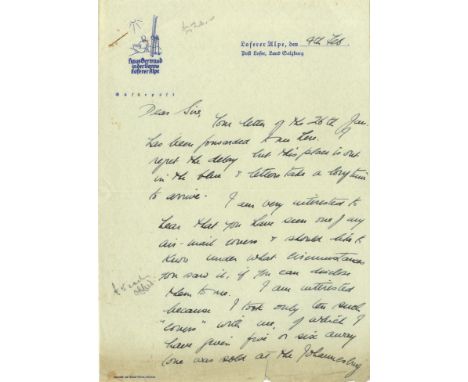 Loferer Alpe, den 4th Feb
Post Lofer, Land Salzburg
Haus Gertraud
in der Sonne
Loferer Alpe
Gästepost
Dear Sir, Your letter of the 26th Jan.
has been forwarded to me here. I
regret the delay but this place is out
in the & letters take a long time
to arrive. I am very interested to
hear that you have seen one of my
air-mail covers & should like to
know under what circumstances
you saw it, if you can disclose
them to me. I am interested
because I took only ten such
"covers" with me, of which I
have given five or six away
(one was sold at the Johannesburg